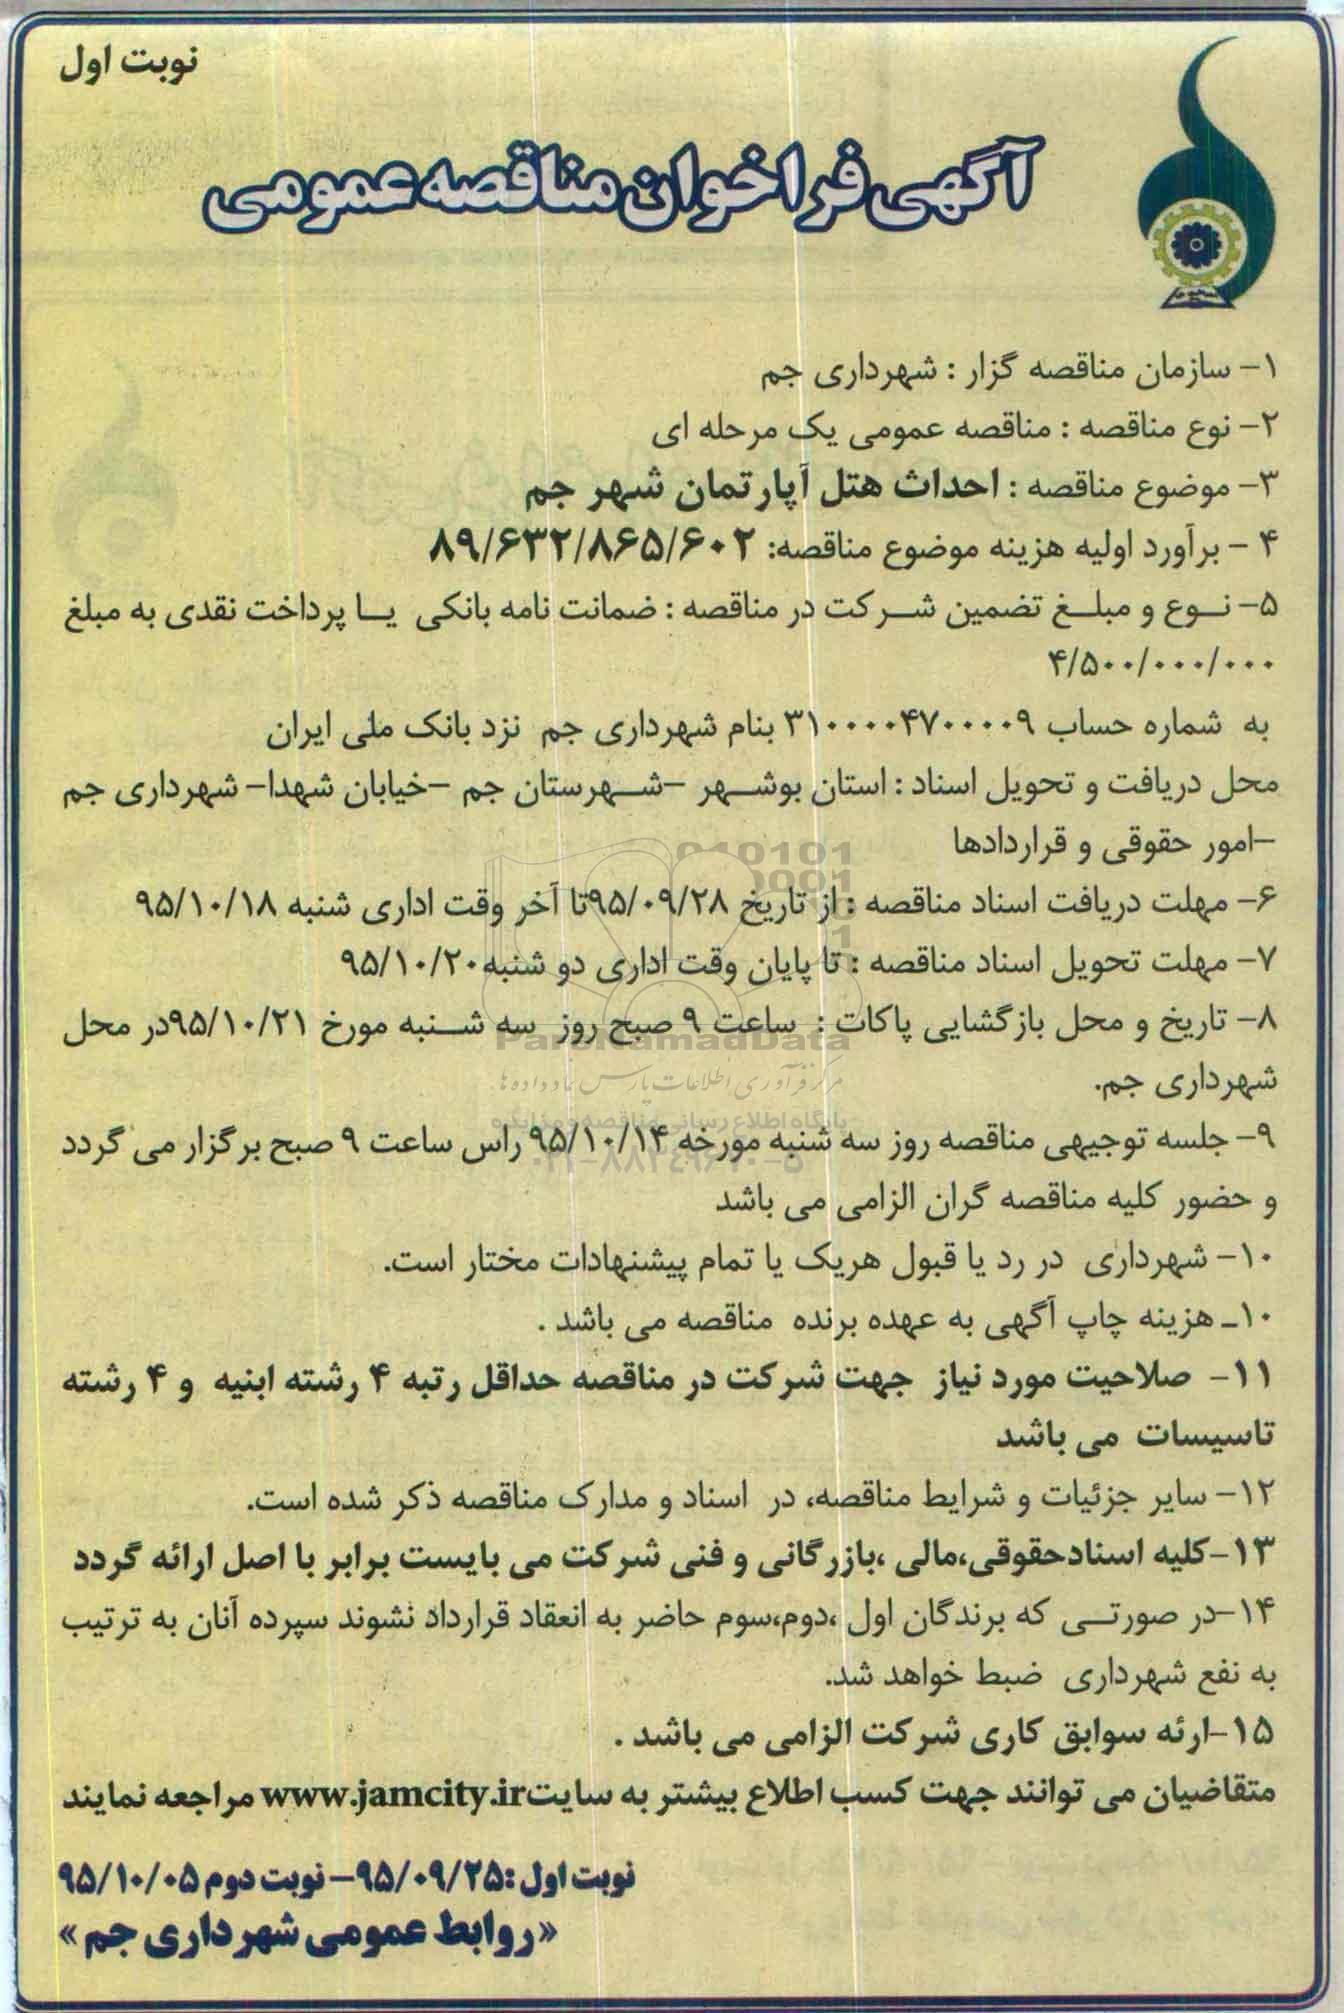 نوبت اول
آگهی فراخوان مناقصه عمومی
۱- سازمان مناقصه گزار : شهرداری جم
۲- نوع مناقصه : مناقصه عمومی یک مرحله ای
۳- موضوع مناقصه : احداث هتل آپارتمان شهر جم
۴ - برآورد اولیه هزینه موضوع مناقصه: ۸۹/۶۳۲/۸۶۵/۶۰۲
۵- نوع و مبلغ تضمین شرکت در مناقصه : ضمانت نامه بانکی یا پرداخت نقدی به مبلغ
۴/۵۰۰/۰۰۰/۰۰۰
به شماره حساب ۳۱۰۰۰۰۴۷۰۰۰۰۹ بنام شهرداری جم نزد بانک ملی ایران
محل دریافت و تحویل اسناد : استان بوشهر -شهرستان جم -خیابان شهدا- شهرداری جم
-امور حقوقی و قراردادها
۶- مهلت دریافت اسناد مناقصه : از تاریخ ۹۵/۰۹/۲۸تا آخر وقت اداری شنبه ۹۵/۱۰/۱۸
۷- مهلت تحویل اسناد مناقصه : تا پایان وقت اداری دو شنبه۹۵/۱۰/۲۰
۸- تاریخ و محل بازگشایی پاکات : ساعت ۹ صبح روز سه شنبه مورخ ۹۵/۱۰/۲۱در محل
ParsNamadData
شهرداری جم.
مرکز فرآوری اطلاعات پارس نماد داده ها
پایگاه اطلاع رسانی مناقصه و مزایده
۹- جلسه توجیهی مناقصه روز سه شنبه مورخه ۹۵/۱۰/۱۴ راس ساعت ۹ صبح برگزار می گردد
۰۲۱-۸۸۳۴۹۶۷۰-۵
و حضور کلیه مناقصه گران الزامی می باشد
۱۰- شهرداری در رد یا قبول هریک یا تمام پیشنهادات مختار است.
۱۰ـ هزینه چاپ آگهی به عهده برنده مناقصه می باشد .
۱۱- صلاحیت مورد نیاز جهت شرکت در مناقصه حداقل رتبه ۴ رشته ابنیه و ۴ رشته
تاسیسات می باشد
۱۲- سایر جزئیات و شرایط مناقصه، در اسناد و مدارک مناقصه ذکر شده است.
۱۳-کلیه اسنادحقوقی،مالی ،بازرگانی و فنی شرکت می بایست برابر با اصل ارائه گردد
۱۴-در صورتی که برندگان اول ،دوم،سوم حاضر به انعقاد قرارداد نشوند سپرده آنان به ترتیب
به نفع شهرداری ضبط خواهد شد.
۱۵-ارئه سوابق کاری شرکت الزامی می باشد .
متقاضیان می توانند جهت کسب اطلاع بیشتر به سایتwww.jamcity.ir مراجعه نمایند
نوبت اول :۹۵/۰۹/۲۵- نوبت دوم ۹۵/۱۰/۰۵
«روابط عمومی شهرداری جم»